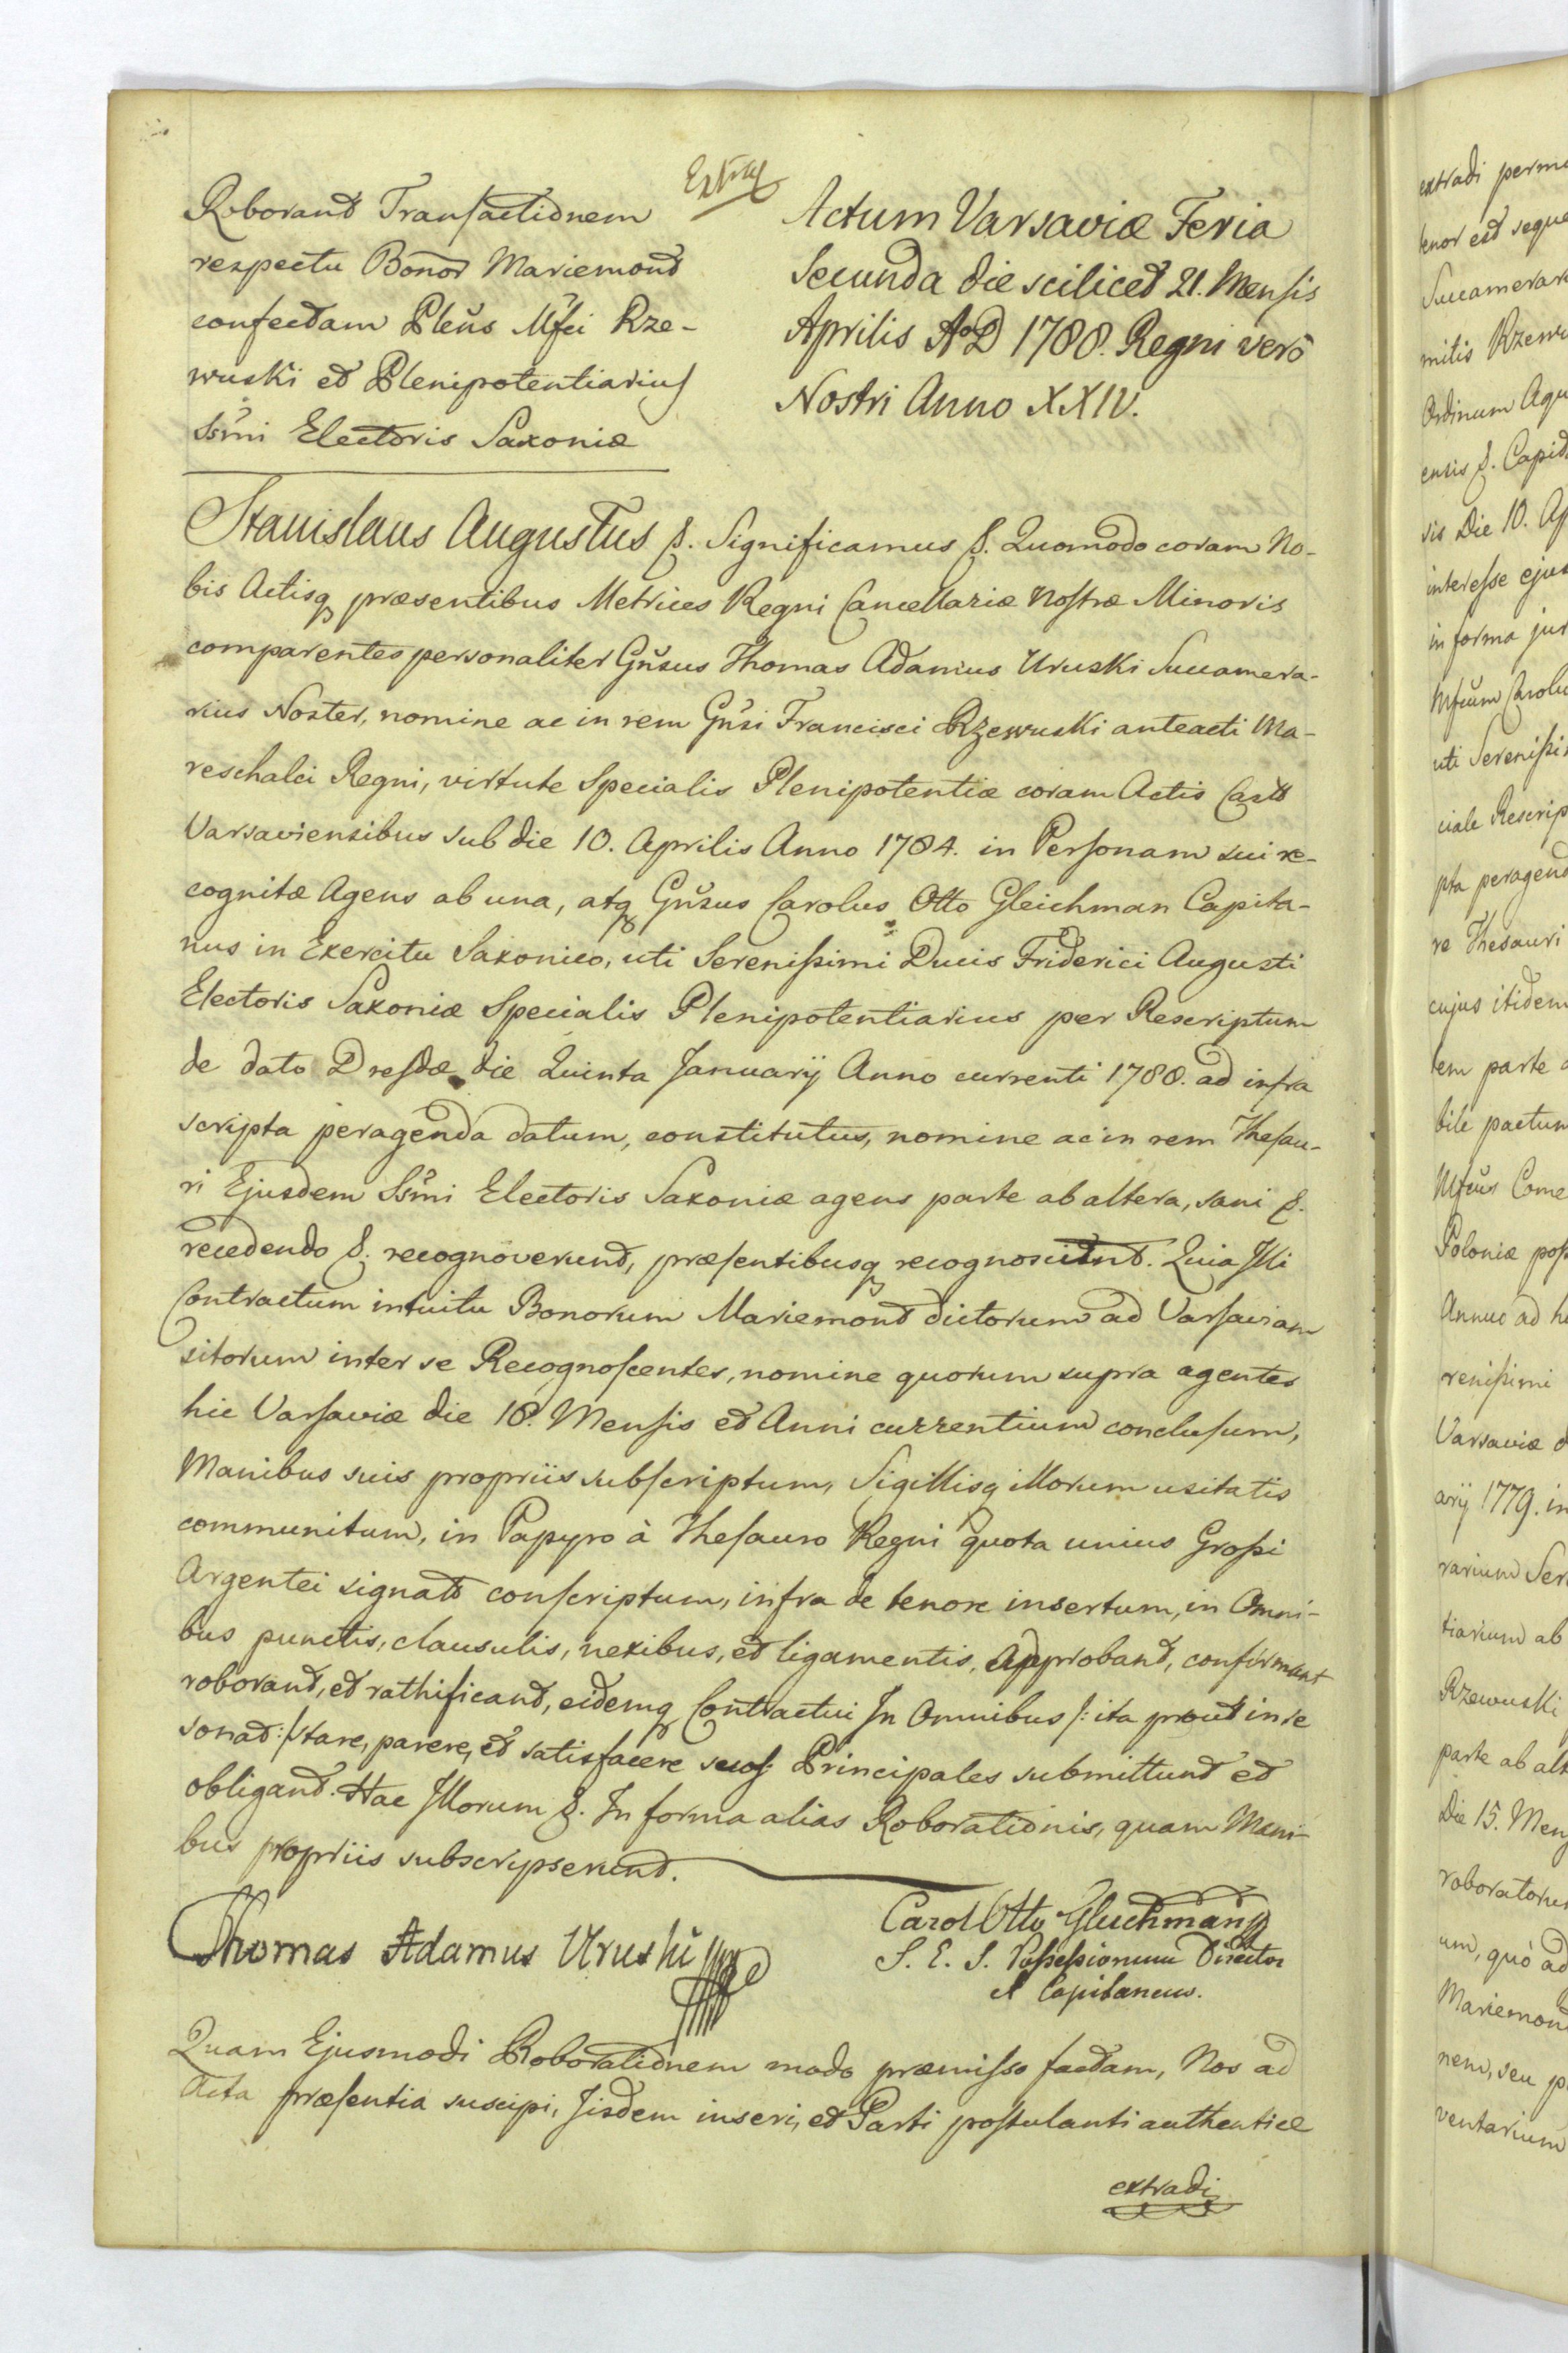 Roborant Transactionem
respectu Bonor Mariemont
confectam Pleňs Mfci Rze-
wuski et Plenipotentiarius
Ssm̃i Electoris Saxoniæ
Actum Varsaviæ Feria
Secunda die scilicet 21. Mensis
Aprilis ÅD 1788. Regni verò
Nostri Anno XXIV.
Stanislaus Augustus &. Significamus &. Quomodo coram No-
bis Actisq præsentibus Metrices Regni Cancellariæ Nostræ Minoris
comparentes personaliter Gňsus Thomas Adamus Uruski Succamera-
rius Noster, nomine ac in rem Gňsi Francisci Rzewuski anteacti Ma-
reschalci Regni, virtute Specialis Plenipotentiæ coram Actis Castr
Varsaviensibus sub die 10. Aprilis Anno 1784. in Personam sui re-
cognitæ Agens ab una, atq Gňsus Carolus Otto Gleichman Capita-
nus in Exercitu Saxonico, uti Serenissimi Ducis Friderici Augusti
Electoris Saxoniæ Specialis Plenipotentiarius per Rescriptum
de dato Dresdæ die Quinta Januarij Anno currenti 1788. ad infra
scripta peragenda datum, constitutus, nomine ac in rem Thesau-
ri Ejusdem Ssm̃i Electoris Saxoniæ agens parte ab altera, sani &.
recedendo &. recognoverunt, præsentibusq recognoscunt. Quia Illi
Contractum intuitu Bonorum Mariemont dictorum ad Varsaviam
sitorum inter se Recognoscentes, nomine quorum supra agentes
hic Varsaviæ die 18. Mensis et Anni currentium conclusum,
Manibus suis propriis subscriptum, Sigillisq illorum usitatis
communitum, in Papyro à Thesauro Regni quota unius Grossi
Argentei signato conscriptum, infra de tenore insertum, in Omni-
bus punctis, clausulis, nexibus, et ligamentis, Approbant, confirmant
roborant, et rathificant, eidemq Contractui In Omnibus /: ita prout in se
sonat :/ stare, parere, et satisfacere suos Principales submittunt et
obligant. Hac Illorum &. In forma alias Roborationis, quam Mani-
bus propriis subscripserunt.
Thomas Adamus Uruski
Carol Otto Gleichmann
S. E. S. Possessionum Director
et Capitaneus.
Quam Ejusmodi Roborationem modo præmisso factam, Nos ad
Acta præsentia suscipi, Iisdem inseri, et Parti postulanti authentice
extradi
extradi
tenor est
mitis
Ordinum
sis Die 10.
interesse
in forma
Mfcum
uti
re Thesauri
cujus itidem
tem parte
bile pactum
Mfcus
Poloniæ
Annuo ad
Varsaviæ
1779. in
tiarium ab
Rzewuski
parte ab
Die 15.
um, quò ad
nem, seu